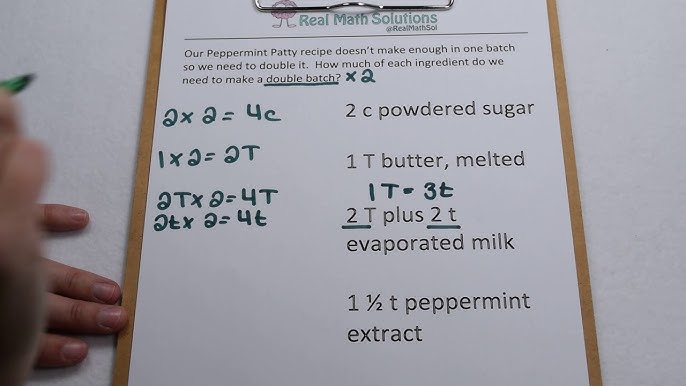 Real Math Solutions
@RealMathSol
Our Peppermint Patty recipe doesn't make enough in one batch
so we need to double it. How much of each ingredient do we
need to make a double batch? x2
2 x 2 = 4c
2 c powdered sugar
1 x 2 = 2T
1 T butter, melted
1T = 3t
2T x 2 = 4T
2t x 2 = 4t
2 T plus 2 t
evaporated milk
1 ½ t peppermint
extract